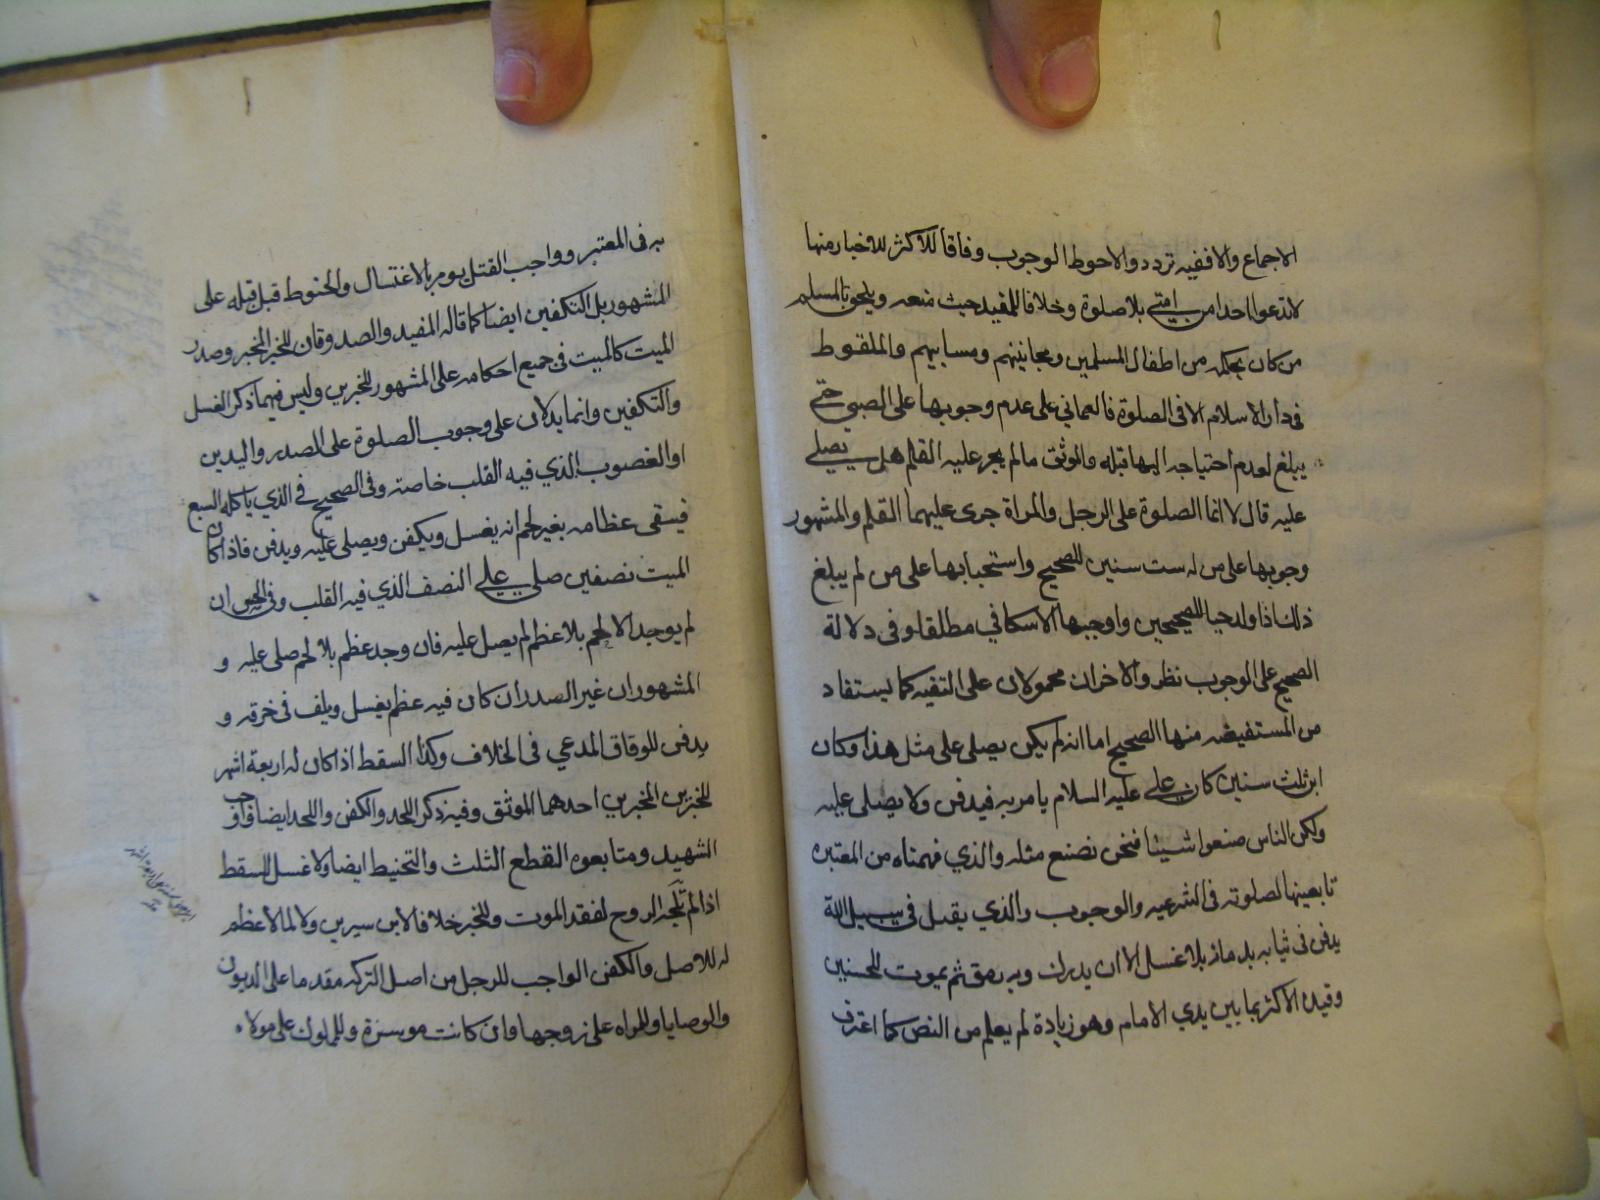 الاجماع والا ففيه تردد والاحوط الوجوب وفاقا للاكثر للاخبار منها
لا تدعوا احدا من امتي بلا صلوة وخلافا للمفيد حيث منعه ويلحق بالمسلم
من كان بحكمه من اطفال المسلمين ومجانينهم ومسابيهم والملقوط
فى دار الاسلام الا فى الصلوة فالعماني على عدم وجوبها على الصبي حتى
يبلغ لعدم احتياجه اليها قبله والموثق مالم يجر عليه القلم هل يصلي
عليه قال لا انما الصلوة على الرجل والمراة جرى عليهما القلم والمشهور
وجوبها على من له ست سنين للصحيح واستحبابها على من لم يبلغ
ذلك اذا ولد حيا للصحيحين واوجبها الاسكافي مطلقا وفى دلالة
الصحيح على الوجوب نظر والاخران محمولان على التقيه كما يستفاد
من المستفيضه منها الصحيح اما انه لم يكن يصلى على مثل هذا وكان
ابن ثلث سنين كان علي عليه السلام يامر به فيدفن ولا يصلى عليه
ولكن الناس صنعوا شيئا فنحن نصنع مثله والذي فهمناه من المعتبره
تابعيتها لصلوته فى الشرعيه والوجوب والذي يقتل في سبيل الله
يدفن فى ثيابه بدمائه بلا غسل الا ان يدرك وبه رمق ثم يموت للحسنين
وقيده الاكثر بما بين يدي الامام وهو زيادة لم يعلم من النص كما اعترف
به فى المعتبر وواجب القتل يومر بالاغتسال والحنوط قبل قتله على
المشهور بل التكفين ايضا كما قاله المفيد والصدوقان للخبر المخبر وصدر
الميت كالميت فى جميع احكامه على المشهور للخبرين وليس فيهما ذكر الغسل
والتكفين وانما يدلان على وجوب الصلوة على الصدر واليدين
او العضو الذي فيه القلب خاصته وفى الصحيح فى الذي ياكله السبع
فيبقى عظامه بغير لحم انه يغسل ويكفن ويصلى عليه ويدفن فاذا كان
الميت نصفين صلى علي النصف الذي فيه القلب وفى ان
لم يوجد الا لحم بلا عظم لم يصل عليه فان وجد عظم بلا لحم صلى عليه و
المشهور ان غير الصدر ان كان فيه عظم يغسل ويلف فى خرقه و
يدفن للوفاق المدعي فى الخلاف وكذا السقط اذا كان له اربعة اشهر
للخبرين المخبرين احدهما الموثق وفيه ذكر اللحد والكفن واللحد ايضا فاوجب
الشهيد ومتابعوه القطع الثلث والتحنيط ايضا ولا غسل للسقط
اذا لم تلجه الروح لفقد الموت وللخبر خلافا لابن سيرين ولا لما لا عظم
له للاصل والكفن الواجب للرجل من اصل التركه مقدما على الديون
والوصايا وللمراه على زوجها وان كانت موسرة وللملوك على مولاه